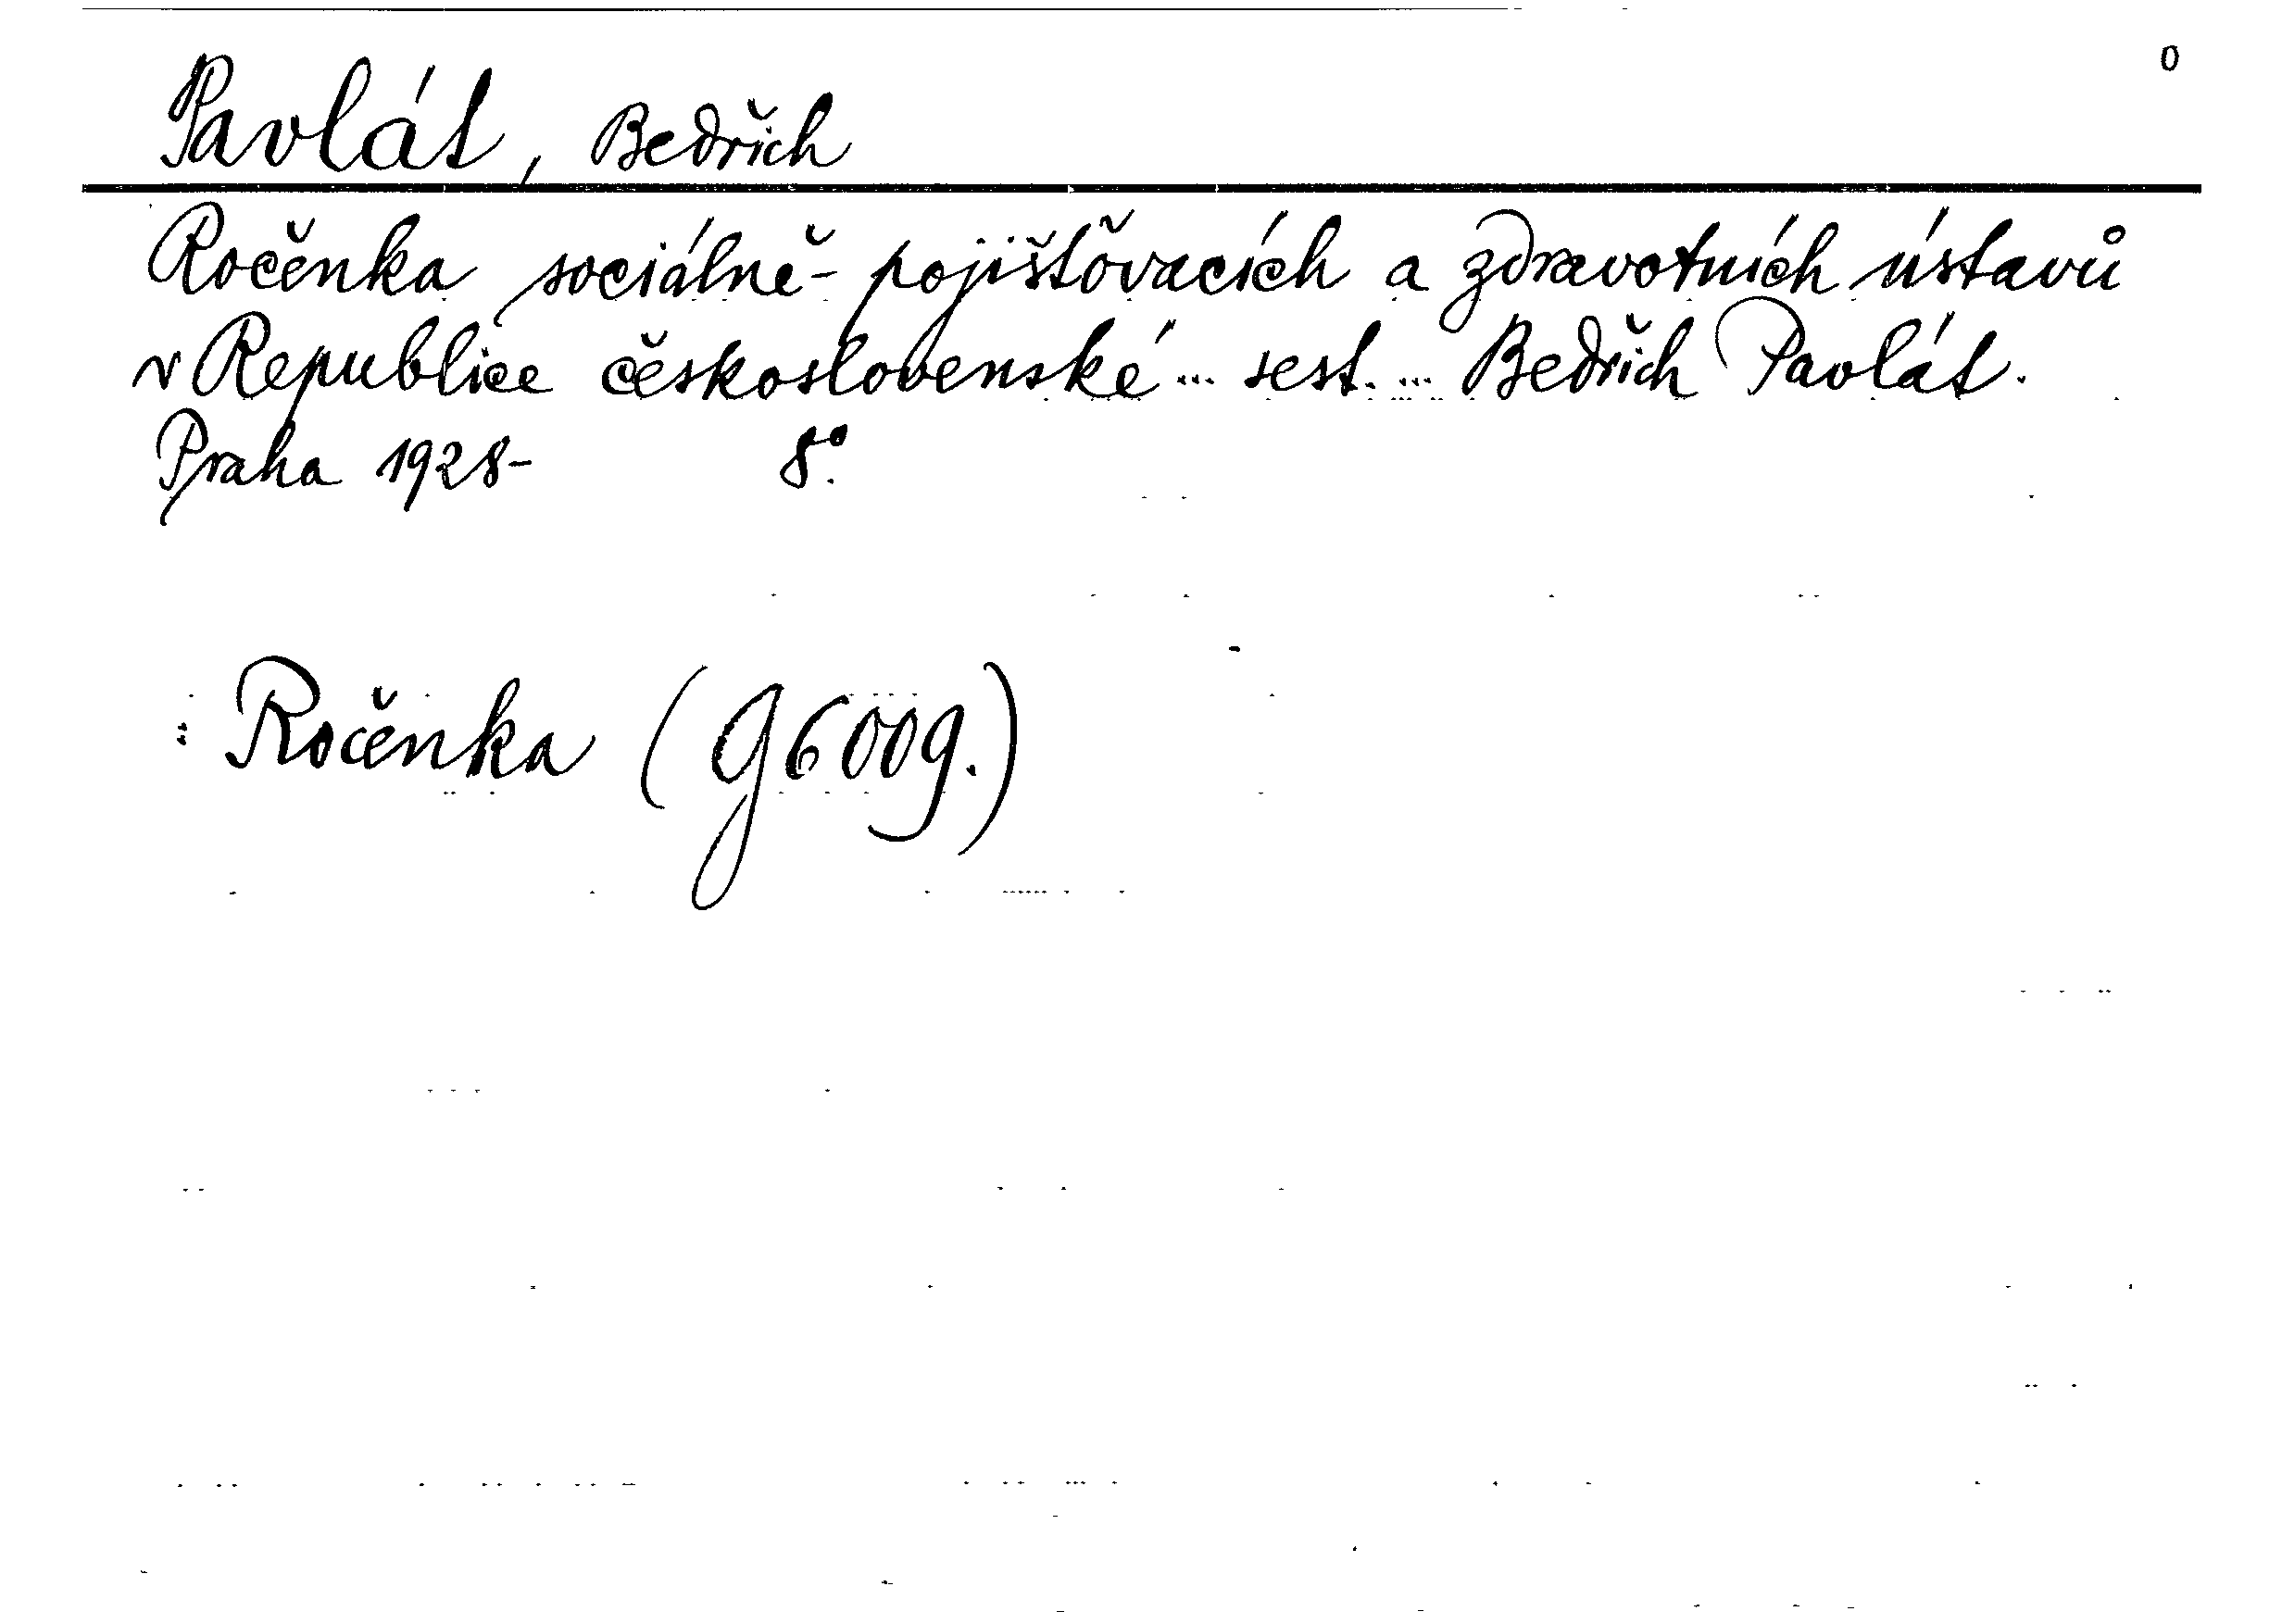 0
Pavlát, Bedřich
Ročenka sociálně-pojišťovacích a zdravotních ústavů
v Republice československé ... sest. ... Bedřich Pavlát.
Praha 1928- 8°.
: Ročenka (g 6009.)